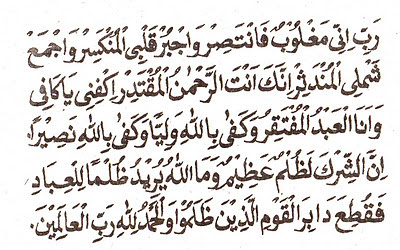 رَبِّ اِنِّى مَغْلُوْبٌ فَانْتَصِرْ وَاجْبُرْ قَلْبِى الْمُنْكَسِرْ وَاجْمَعْ
شَمْلِى الْمُنْدَثِرْ اِنَّكَ اَنْتَ الرَّحْمٰنُ الْمُقْتَدِرْ اِكْفِنِى يَا كَافِى
وَاَنَا الْعَبْدُ الْمُفْتَقِرُ وَكَفٰى بِاللهِ وَلِيًّا وَكَفٰى بِاللهِ نَصِيْرًا.
اِنَّ الشِّرْكَ لَظُلْمٌ عَظِيْمٌ وَمَا اللهُ يُرِيْدُ ظُلْمًا لِلْعِبَادِ
فَقُطِعَ دَابِرُ الْقَوْمِ الَّذِيْنَ ظَلَمُوْا وَالْحَمْدُ لِلّٰهِ رَبِّ الْعَالَمِيْنَ.